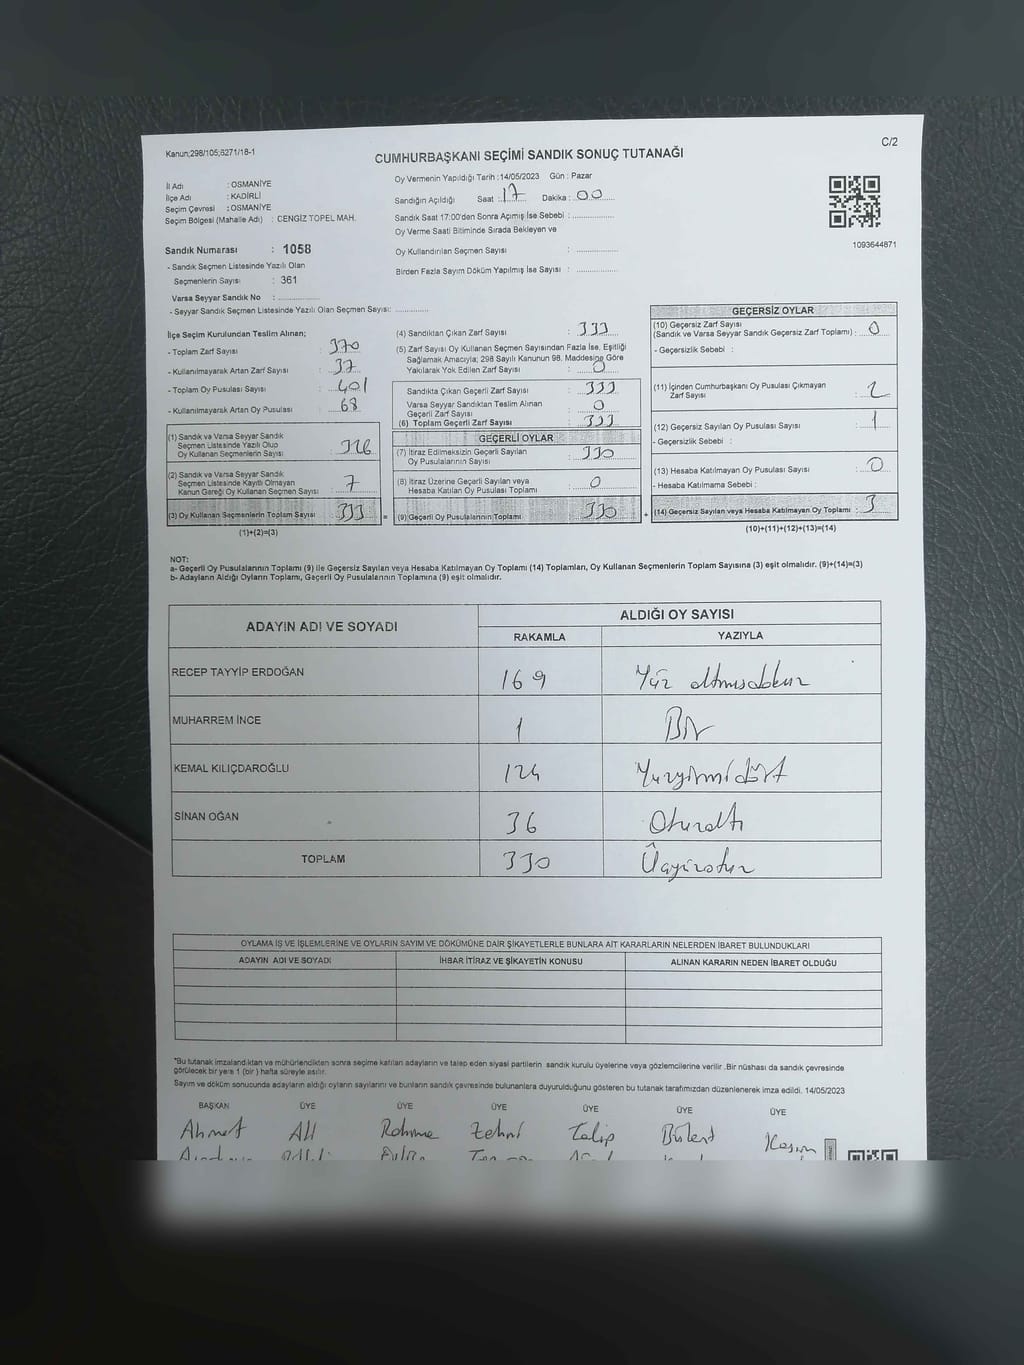 Kanun;298/105;6271/18-1
C/2
CUMHURBAŞKANI SEÇİMİ SANDIK SONUÇ TUTANAĞI
İl Adı : OSMANİYE
İlçe Adı : KADİRLİ
Seçim Çevresi : OSMANİYE
Seçim Bölgesi (Mahalle Adı) : CENGİZ TOPEL MAH.
Oy Vermenin Yapıldığı Tarih :14/05/2023 Gün : Pazar
Sandığın Açıldığı Saat : 17 Dakika : 00
Sandık Saat 17:00'den Sonra Açımış İse Sebebi :
Oy Verme Saati Bitiminde Sırada Bekleyen ve
Oy Kullandırılan Seçmen Sayısı :
Birden Fazla Sayım Döküm Yapılmış İse Sayısı :
1093644871
Sandık Numarası : 1058
- Sandık Seçmen Listesinde Yazılı Olan
Seçmenlerin Sayısı : 361
Varsa Seyyar Sandık No :
- Seyyar Sandık Seçmen Listesinde Yazılı Olan Seçmen Sayısı:
İlçe Seçim Kurulundan Teslim Alınan;
- Toplam Zarf Sayısı : 370
- Kullanılmayarak Artan Zarf Sayısı : 37
- Toplam Oy Pusulası Sayısı : 401
- Kullanılmayarak Artan Oy Pusulası : 68
(1) Sandık ve Varsa Seyyar Sandık
Seçmen Listesinde Yazılı Olup
Oy Kullanan Seçmenlerin Sayısı : 326
(2) Sandık ve Varsa Seyyar Sandık
Seçmen Listesinde Kayıtlı Olmayan
Kanun Gereği Oy Kullanan Seçmen Sayısı : 7
(3) Oy Kullanan Seçmenlerin Toplam Sayısı : 333
(1)+(2)=(3)
(4) Sandıktan Çıkan Zarf Sayısı : 333
(5) Zarf Sayısı Oy Kullanan Seçmen Sayısından Fazla İse, Eşitliği
Sağlamak Amacıyla; 298 Sayılı Kanunun 98. Maddesine Göre
Yakılarak Yok Edilen Zarf Sayısı : 0
Sandıkta Çıkan Geçerli Zarf Sayısı : 333
Varsa Seyyar Sandıktan Teslim Alınan
Geçerli Zarf Sayısı : 0
(6) Toplam Geçerli Zarf Sayısı : 333
GEÇERLİ OYLAR
(7) İtiraz Edilmeksizin Geçerli Sayılan
Oy Pusulalarının Sayısı : 330
(8) İtiraz Üzerine Geçerli Sayılan veya
Hesaba Katılan Oy Pusulası Toplamı : 0
(9) Geçerli Oy Pusulalarının Toplamı : 330
GEÇERSİZ OYLAR
(10) Geçersiz Zarf Sayısı
(Sandık ve Varsa Seyyar Sandık Geçersiz Zarf Toplamı) : 0
- Geçersizlik Sebebi :
(11) İçinden Cumhurbaşkanı Oy Pusulası Çıkmayan
Zarf Sayısı : 2
(12) Geçersiz Sayılan Oy Pusulası Sayısı : 1
- Geçersizlik Sebebi :
(13) Hesaba Katılmayan Oy Pusulası Sayısı : 0
- Hesaba Katılmama Sebebi :
(14) Geçersiz Sayılan veya Hesaba Katılmayan Oy Toplamı : 3
(10)+(11)+(12)+(13)=(14)
NOT:
a- Geçerli Oy Pusulalarının Toplamı (9) ile Geçersiz Sayılan veya Hesaba Katılmayan Oy Toplamı (14) Toplamları, Oy Kullanan Seçmenlerin Toplam Sayısına (3) eşit olmalıdır. (9)+(14)=(3)
b- Adayların Aldığı Oyların Toplamı, Geçerli Oy Pusulalarının Toplamına (9) eşit olmalıdır.
ADAYIN ADI VE SOYADI ALDIĞI OY SAYISI
RAKAMLA YAZIYLA
RECEP TAYYİP ERDOĞAN 169 Yüz altmışdokuz
MUHARREM İNCE 1 Bir
KEMAL KILIÇDAROĞLU 124 Yüzyirmidört
SİNAN OĞAN 36 Otuzaltı
TOPLAM 330 Üçyüzotuz
OYLAMA İŞ VE İŞLEMLERİNE VE OYLARIN SAYIM VE DÖKÜMÜNE DAİR ŞİKAYETLERLE BUNLARA AİT KARARLARIN NELERDEN İBARET BULUNDUKLARI
ADAYIN ADI VE SOYADI İHBAR İTİRAZ VE ŞİKAYETİN KONUSU ALINAN KARARIN NEDEN İBARET OLDUĞU
*Bu tutanak imzalandıktan ve mühürlendikten sonra seçime katılan adayların ve talep eden siyasi partilerin sandık kurulu üyelerine veya gözlemcilerine verilir .Bir nüshası da sandık çevresinde
görülecek bir yere 1 (bir ) hafta süreyle asılır.
Sayım ve döküm sonucunda adayların aldığı oyların sayılarını ve bunların sandık çevresinde bulunanlara duyurulduğunu gösteren bu tutanak tarafımızdan düzenlenerek imza edildi. 14/05/2023
BAŞKAN ÜYE ÜYE ÜYE ÜYE ÜYE ÜYE
Ahmet Ali Rahime Zehni Talip Bülent Kasım